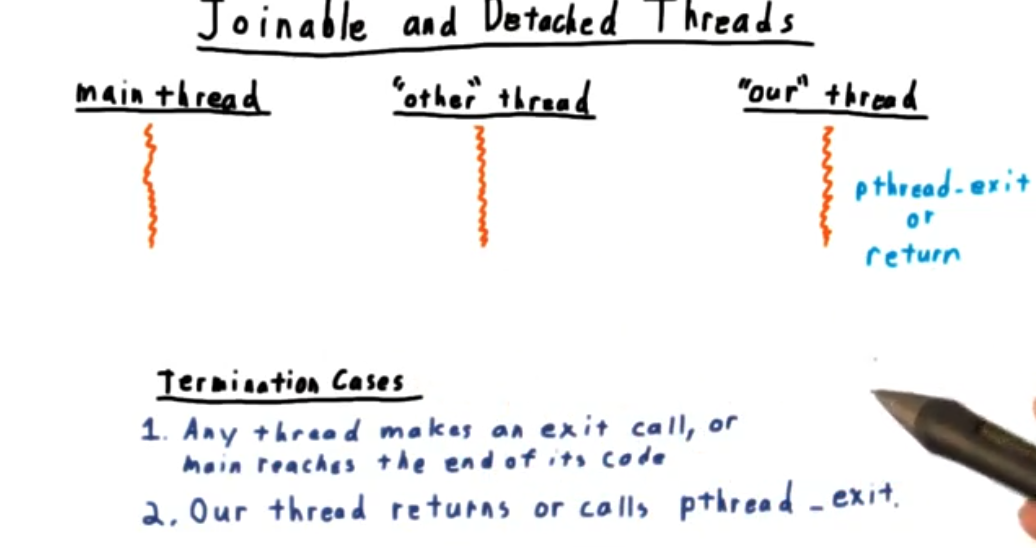 Joinable and Detached Threads
main thread
"other" thread
"our" thread
pthread_exit
or
return
Termination Cases
1. Any thread makes an exit call, or
main reaches the end of its code
2. Our thread returns or calls pthread_exit.